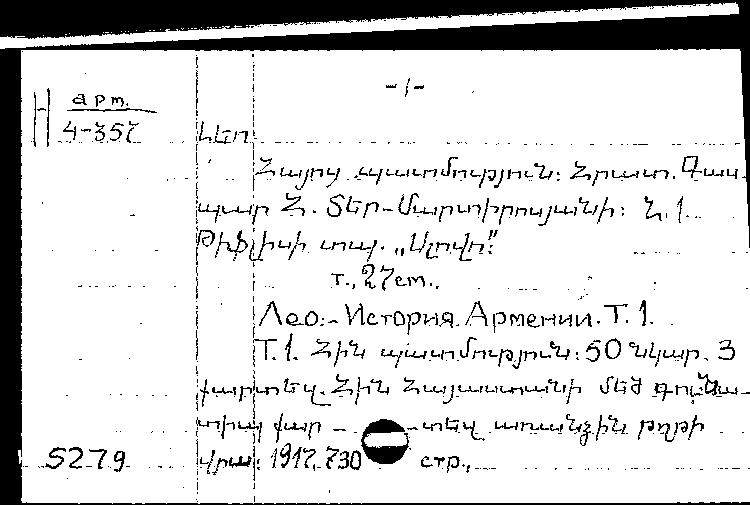 -1-
H арм.
4-357
Լեո
Հայոց պատմություն: Հրատ. Գաս-
պար Հ. Տեր-Մարտիրոսյանի: Հ. 1.
Թիֆլիսի տպ. „Սլովո":
т., 27 cm..
Лео:- История Армении. Т. 1.
Т. 1. Հին պատմություն: 50 նկար. 3
քարտեզ. Հին Հայաստանի մեծ
քար- -տեզ առանձին թղթի
5279 վրա: 1917. 730 стр.,